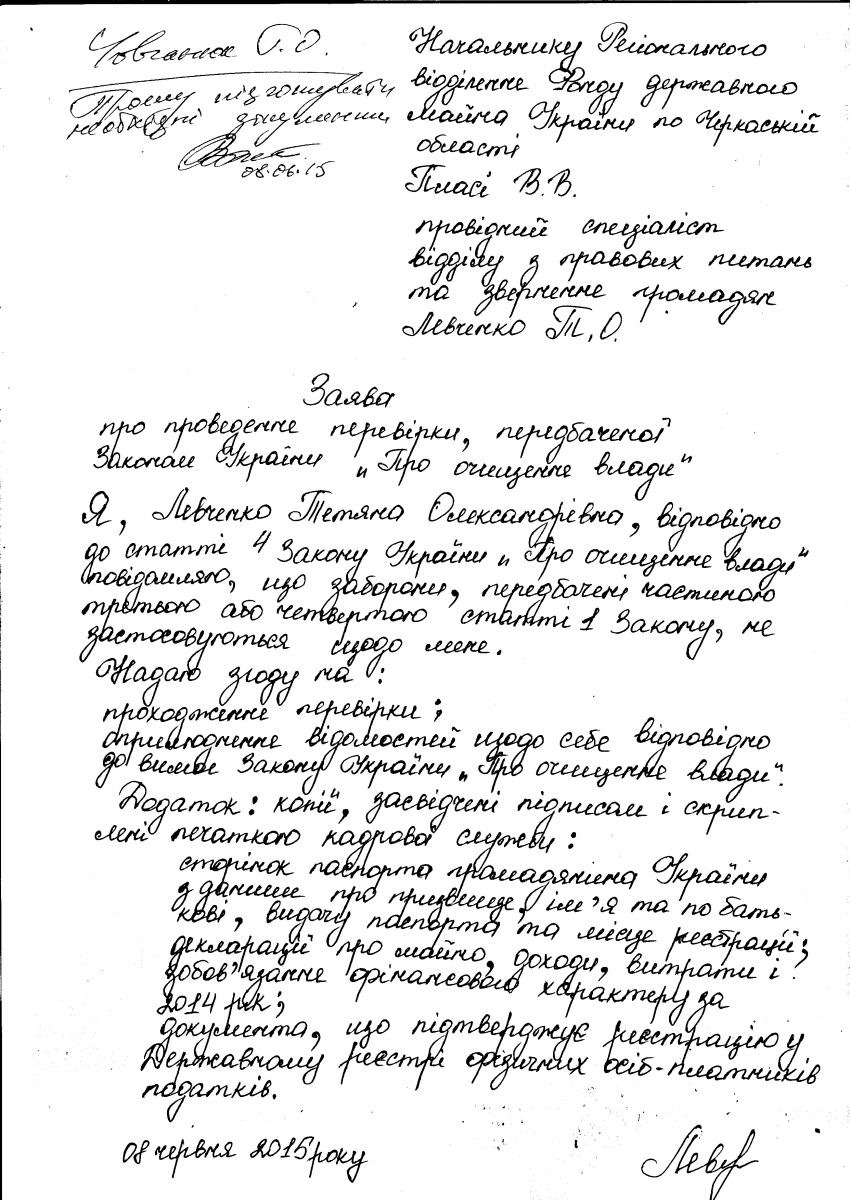 Човганюк Г.О.
Прошу підготувати
необхідні документи
08.06.15
Начальнику Регіонального
відділення Фонду державного
майна України по Черкаській
області
Пласі В.В.
провідний спеціаліст
відділу з правових питань
та звернення громадян
Левченко Т.О.
Заява
про проведення перевірки, передбаченої
Законом України „Про очищення влади"
Я, Левченко Тетяна Олександрівна, відповідно
до статті 4 Закону України „Про очищення влади"
повідомляю, що заборони, передбачені частиною
третьою або четвертою статті 1 Закону, не
застосовуються щодо мене.
Надаю згоду на:
проходження перевірки;
оприлюднення відомостей щодо себе відповідно
до вимог Закону України „Про очищення влади".
Додаток: копії, засвідчені підписом і скріп-
лені печаткою кадрової служби:
сторінок паспорта громадянина України
з даними про прізвище, ім'я та по бать-
кові, видачу паспорта та місце реєстрації;
декларацій про майно, доходи, витрати і
зобов'язання фінансового характеру за
2014 рік;
документа, що підтверджує реєстрацію у
Державному реєстрі фізичних осіб-платників
податків.
08 червня 2015 року